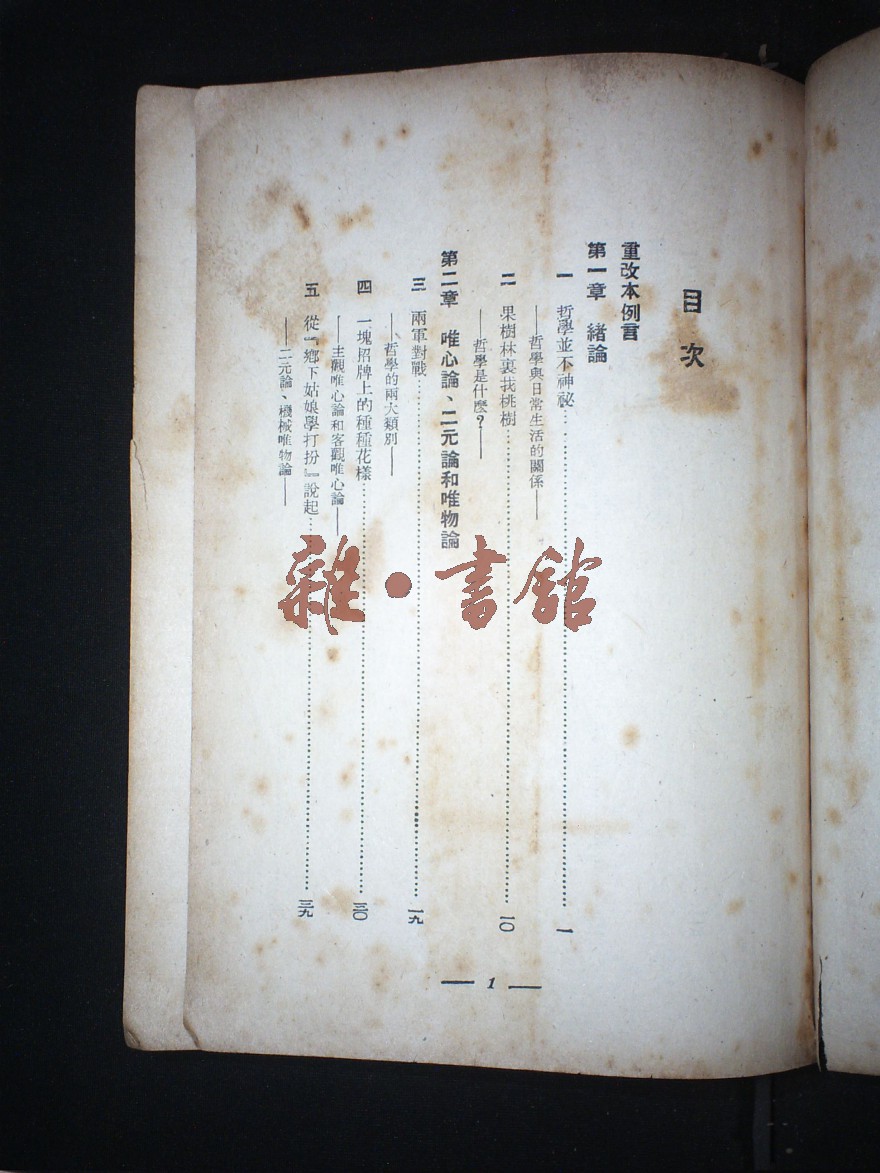 目次
重改本例言
第一章 緒論
一 哲學並不神祕……一
——哲學與日常生活的關係——
二 果樹林裏找桃樹……一〇
——哲學是什麼？——
第二章 唯心論、二元論和唯物論
三 兩軍對戰……一九
——哲學的兩大類別——
四 一塊招牌上的種種花樣……三〇
——主觀唯心論和客觀唯心論——
五 從『鄉下姑娘學打扮』說起……三九
——二元論、機械唯物論——
— 1 —
雜·書館